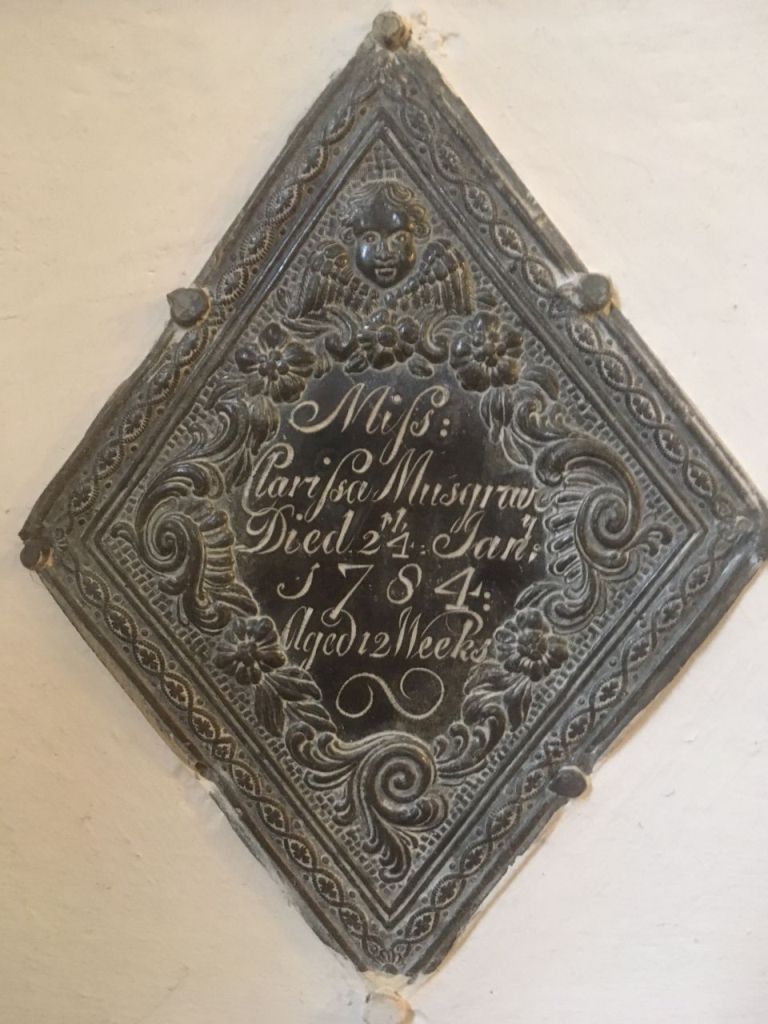 Miſs:
Clariſsa Musgrav
Died 24.ᴹ Janʸ:
1784:
Aged 12 Weeks